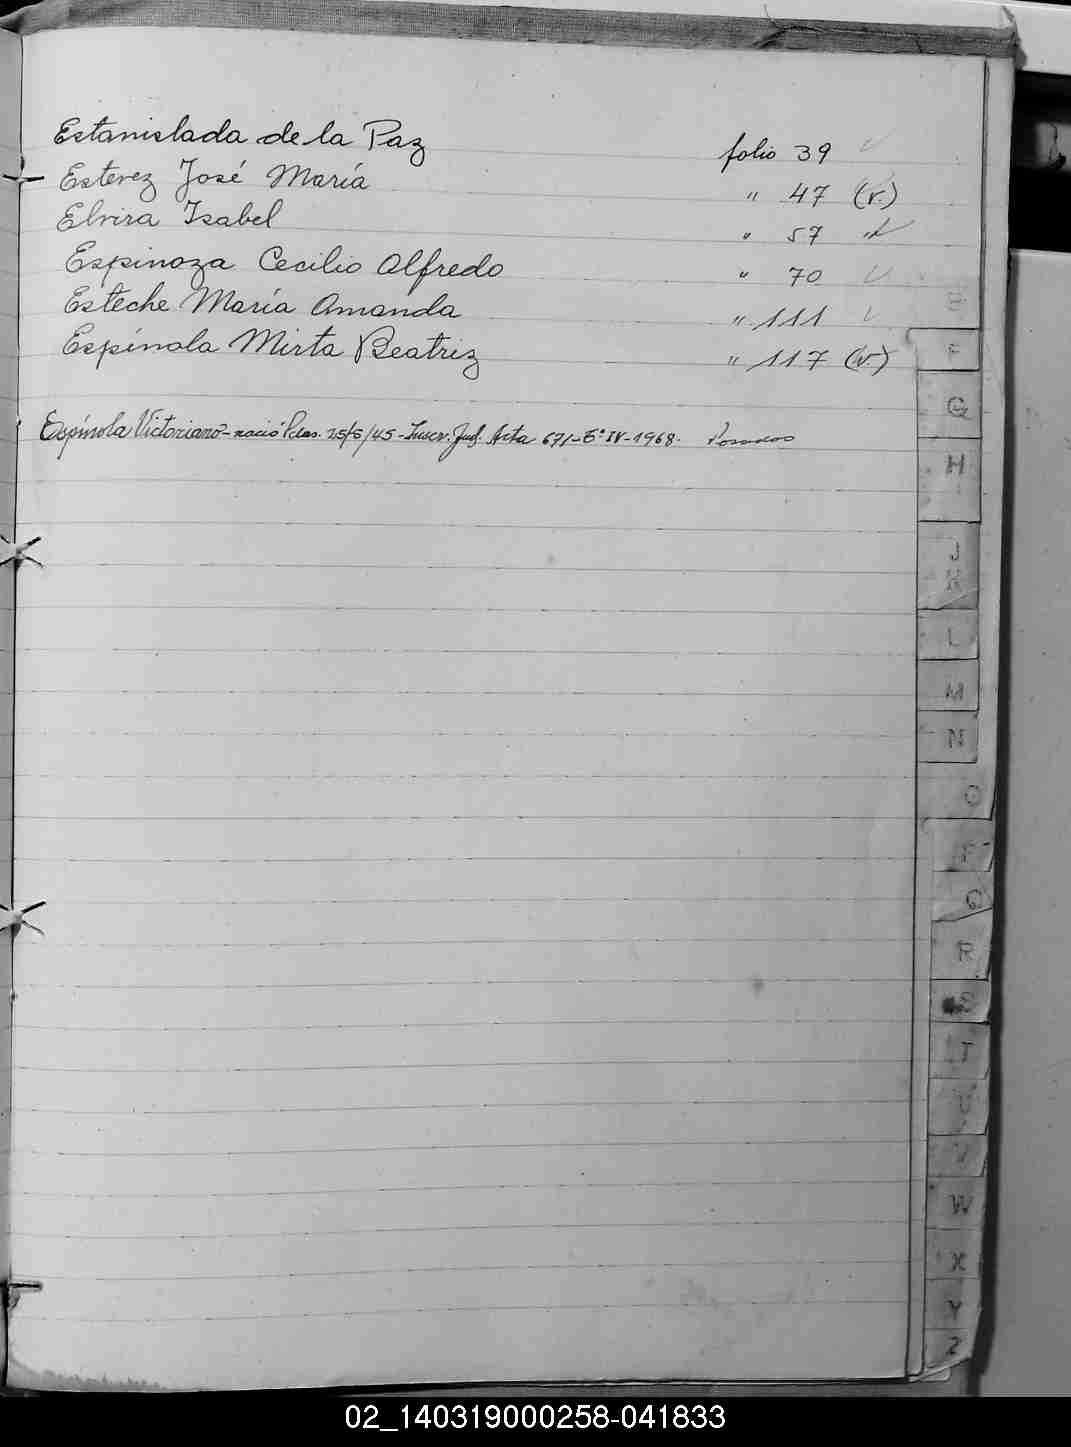 Estanislada de la Paz folio 39
Estevez José María " 47 (v.)
Elvira Isabel " 57 "
Espinoza Cecilio Alfredo " 70
Esteche María Amanda " 111
Espínola Mirta Beatriz " 117 (v.)
Espínola Victoriano - nació Pdas. 25/5/45 - Inscr. Jud. Acta 671 - Tº IV - 1968. Posadas
E
F
G
H
J
K
L
M
N
O
P
Q
R
S
T
U
V
W
X
Y
Z
02_140319000258-041833